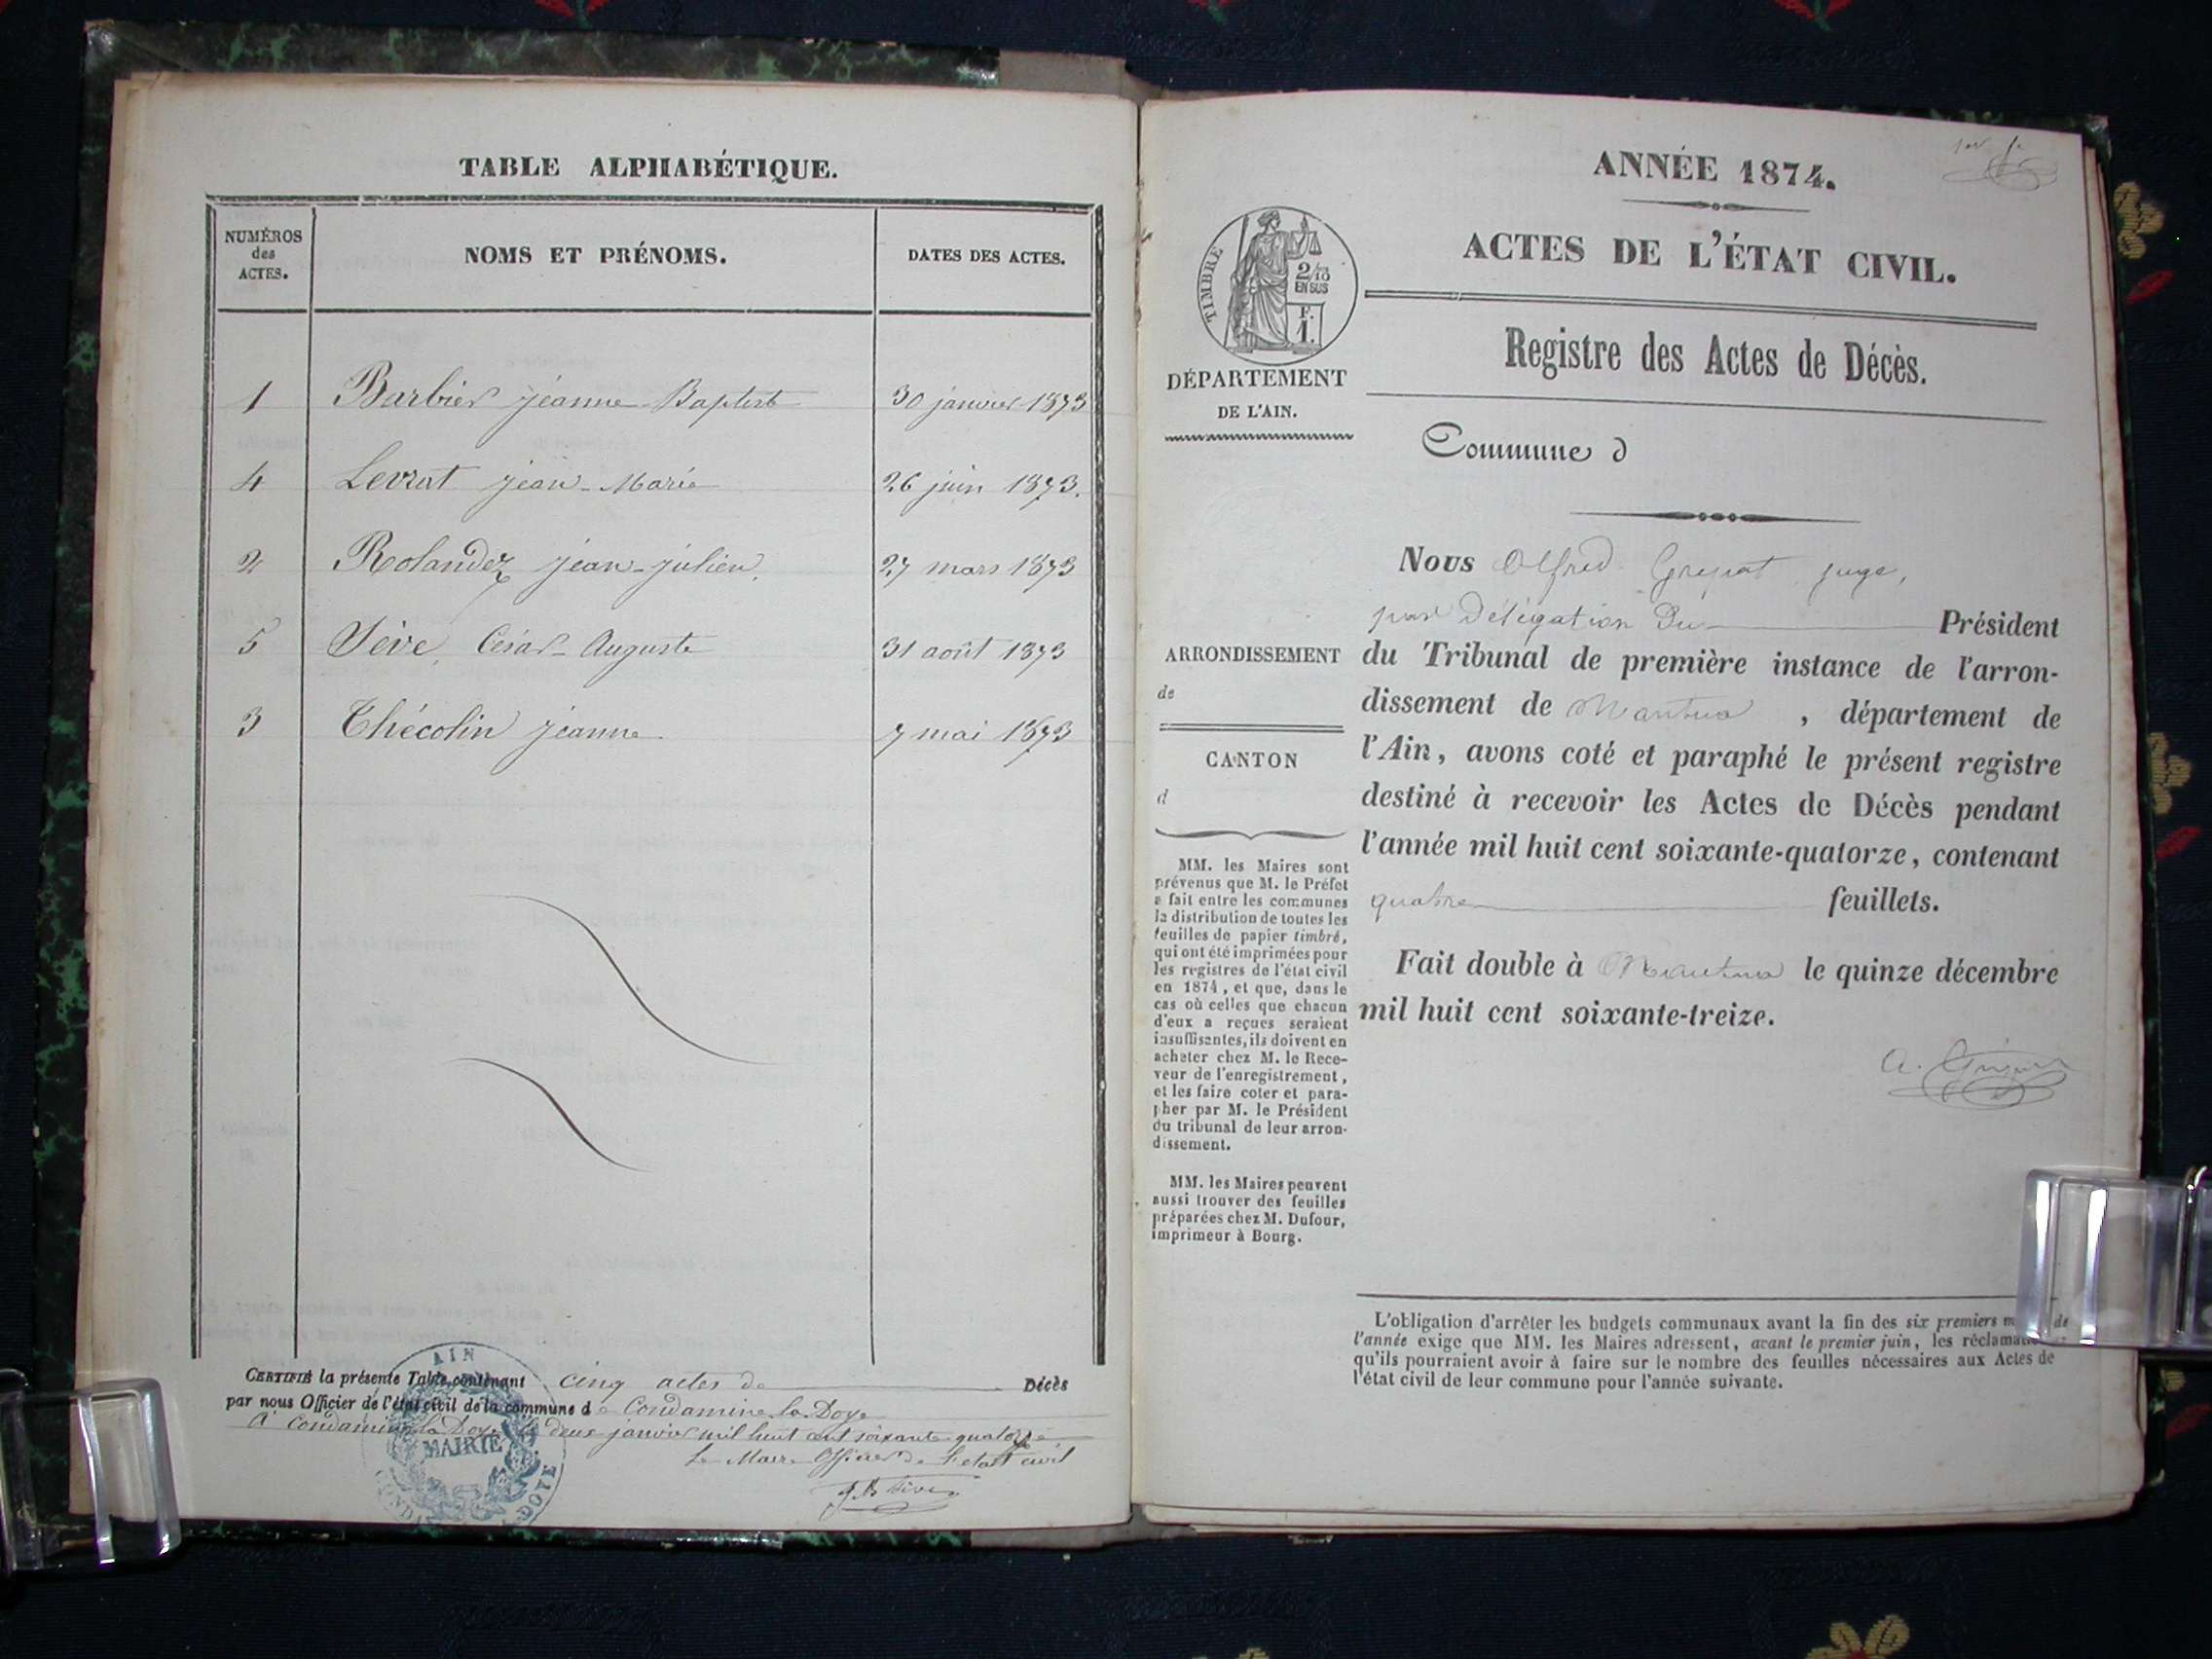 TABLE ALPHABÉTIQUE.
NUMÉROS
des
ACTES.
NOMS ET PRÉNOMS.
DATES DES ACTES.
1 Barbier jeanne Baptist 30 janvier 1873
4 Levrat jean-Marie 26 juin 1873.
2 Rolandez jean-julien. 27 mars 1873
5 Sève César-Auguste 31 août 1873
3 Thécolin jeanne 7 mai 1873
CERTIFIÉ la présente Table, contenant cinq actes de Décès
par nous Officier de l'état civil de la commune de Condamine la Doye
A Condamine la Doye le deux janvier mil huit cent soixante quatorze
Le Maire Officier de l'etat civil
AIN
MAIRIE
DOYE
ANNÉE 1874.
ACTES DE L'ÉTAT CIVIL.
TIMBRE
2/10
EN SUS
F.
1.
Registre des Actes de Décès.
DÉPARTEMENT
DE L'AIN.
Commune d
Nous Alfred juge,
par Délégation Du Président
du Tribunal de première instance de l'arron-
dissement de Nantua, département de
l'Ain, avons coté et paraphé le présent registre
destiné à recevoir les Actes de Décès pendant
l'année mil huit cent soixante-quatorze, contenant
quatre feuillets.
Fait double à Nantua le quinze décembre
mil huit cent soixante-treize.
ARRONDISSEMENT
de
CANTON
d
MM. les Maires sont
prévenus que M. le Préfet
a fait entre les communes
la distribution de toutes les
feuilles de papier timbré,
qui ont été imprimées pour
les registres de l'état civil
en 1874, et que, dans le
cas où celles que chacun
d'eux a reçues seraient
insuffisantes, ils doivent en
acheter chez M. le Rece-
veur de l'enregistrement,
et les faire coter et para-
pher par M. le Président
du tribunal de leur arron-
dissement.
MM. les Maires peuvent
aussi trouver des feuilles
préparées chez M. Dufour,
imprimeur à Bourg.
L'obligation d'arrêter les budgets communaux avant la fin des six premiers de
l'année exige que MM. les Maires adressent, avant le premier juin, les
qu'ils pourraient avoir à faire sur le nombre des feuilles nécessaires aux Actes de
l'état civil de leur commune pour l'année suivante.